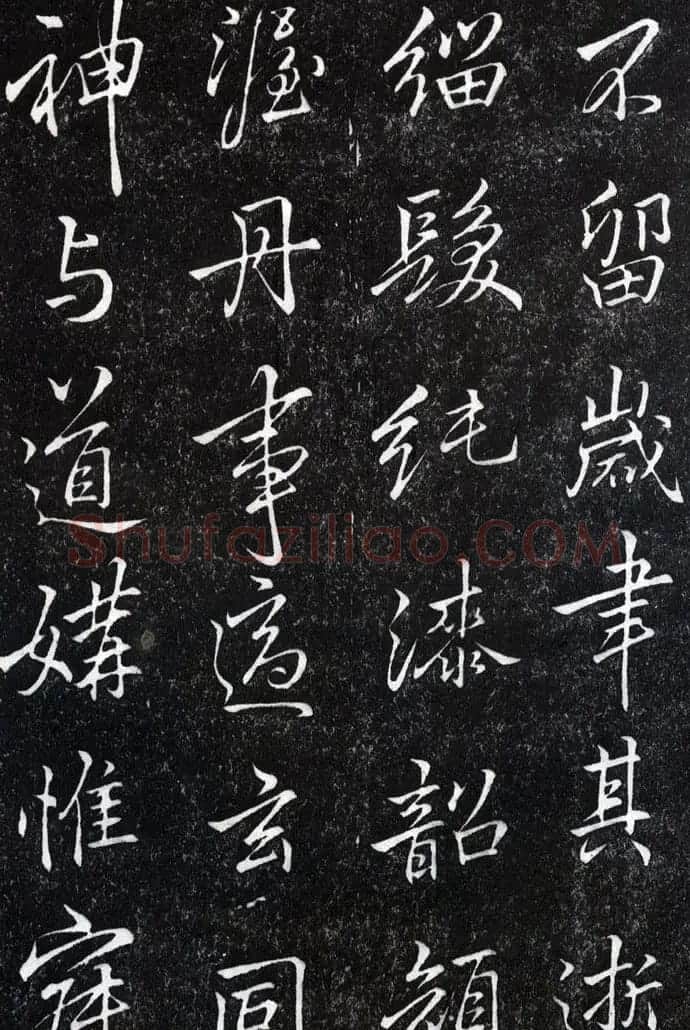 不留歲聿其逝
緇髮純漆韶顏
渥丹事適玄同
神与道媾惟
Shufaziliao.COM